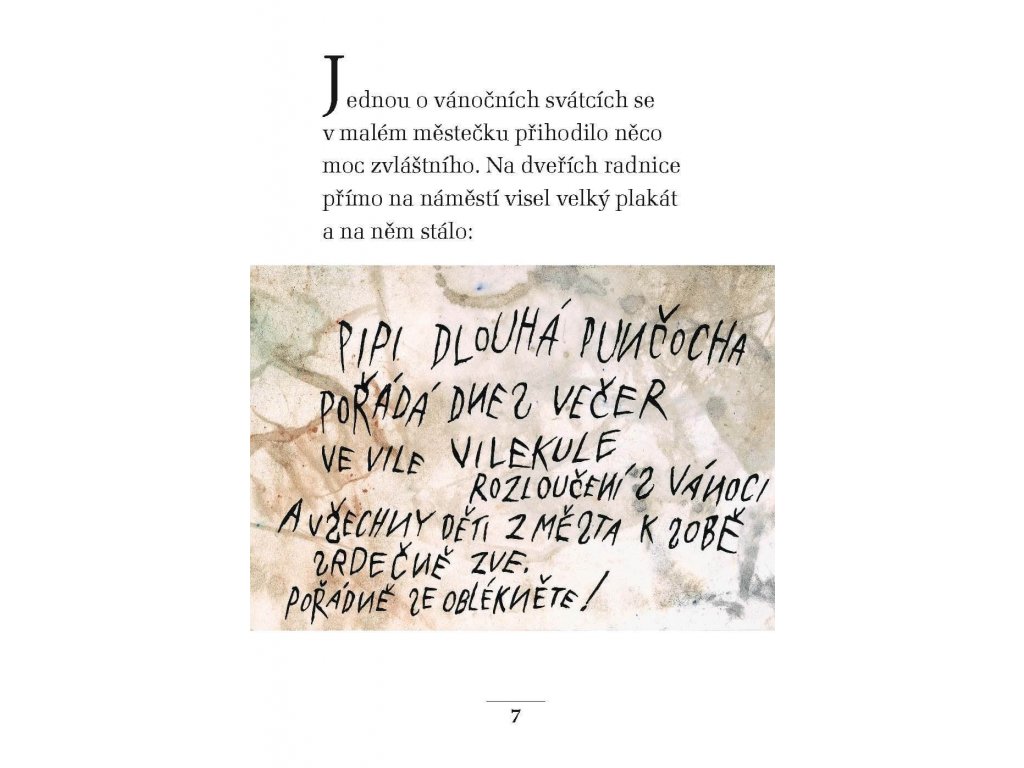 Jednou o vánočních svátcích se
v malém městečku přihodilo něco
moc zvláštního. Na dveřích radnice
přímo na náměstí visel velký plakát
a na něm stálo:
PIPI DLOUHÁ PUNČOCHA
POŘÁDÁ DNES VEČER
VE VILE VILEKULE
ROZLOUČENÍ S VÁNOCI
A VŠECHNY DĚTI Z MĚSTA K SOBĚ
SRDEČNĚ ZVE.
POŘÁDNĚ SE OBLÉKNĚTE!
7